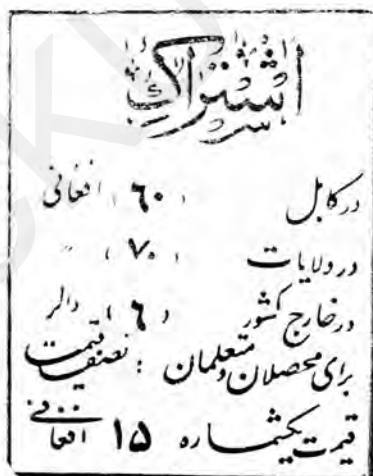 اشتراک
در کابل (۶۰) افغانی
در ولایات (۷۰) "
در خارج کشور (۶) دالر
برای محصلان و متعلمان : نصف قیمت
قیمت یکشماره ۱۵ افغانی